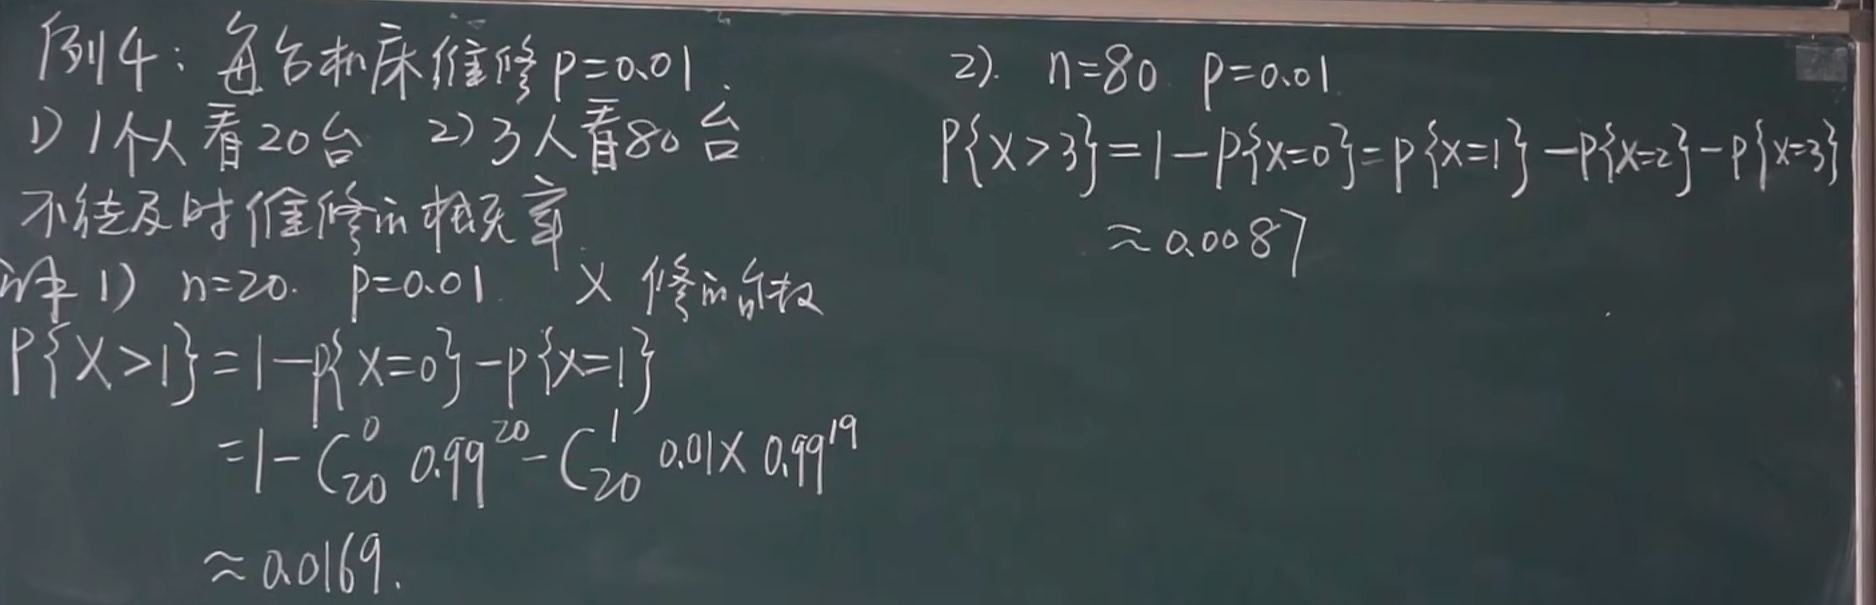 例4：每台机床维修p=0.01.
1) 1个人看20台 2) 3人看80台
不能及时维修的概率.
解 1) n=20. p=0.01. X 修的台数
P{X>1}=1-P{X=0}-P{X=1}
=1-C₂₀⁰ 0.99²⁰-C₂₀¹ 0.01×0.99¹⁹
≈0.0169.
2). n=80 p=0.01.
P{X>3}=1-P{X=0}=P{X=1}-P{X=2}-P{X=3}
≈0.0087